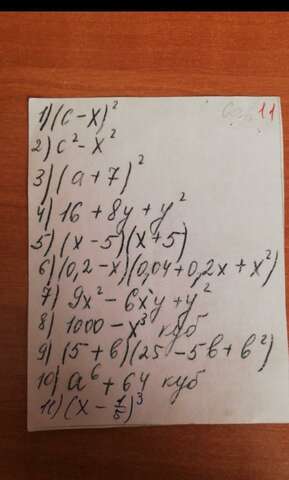 11
1) (c - x)²
2) c² - x²
3) (a + 7)²
4) 16 + 8y + y²
5) (x - 5)(x + 5)
6) (0,2 - x)(0,04 + 0,2x + x²)
7) 9x² - 6xy + y²
8) 1000 - x³ куб
9) (5 + b)(25 - 5b + b²)
10) a⁶ + 64 куб
11) (x - 1/5)³